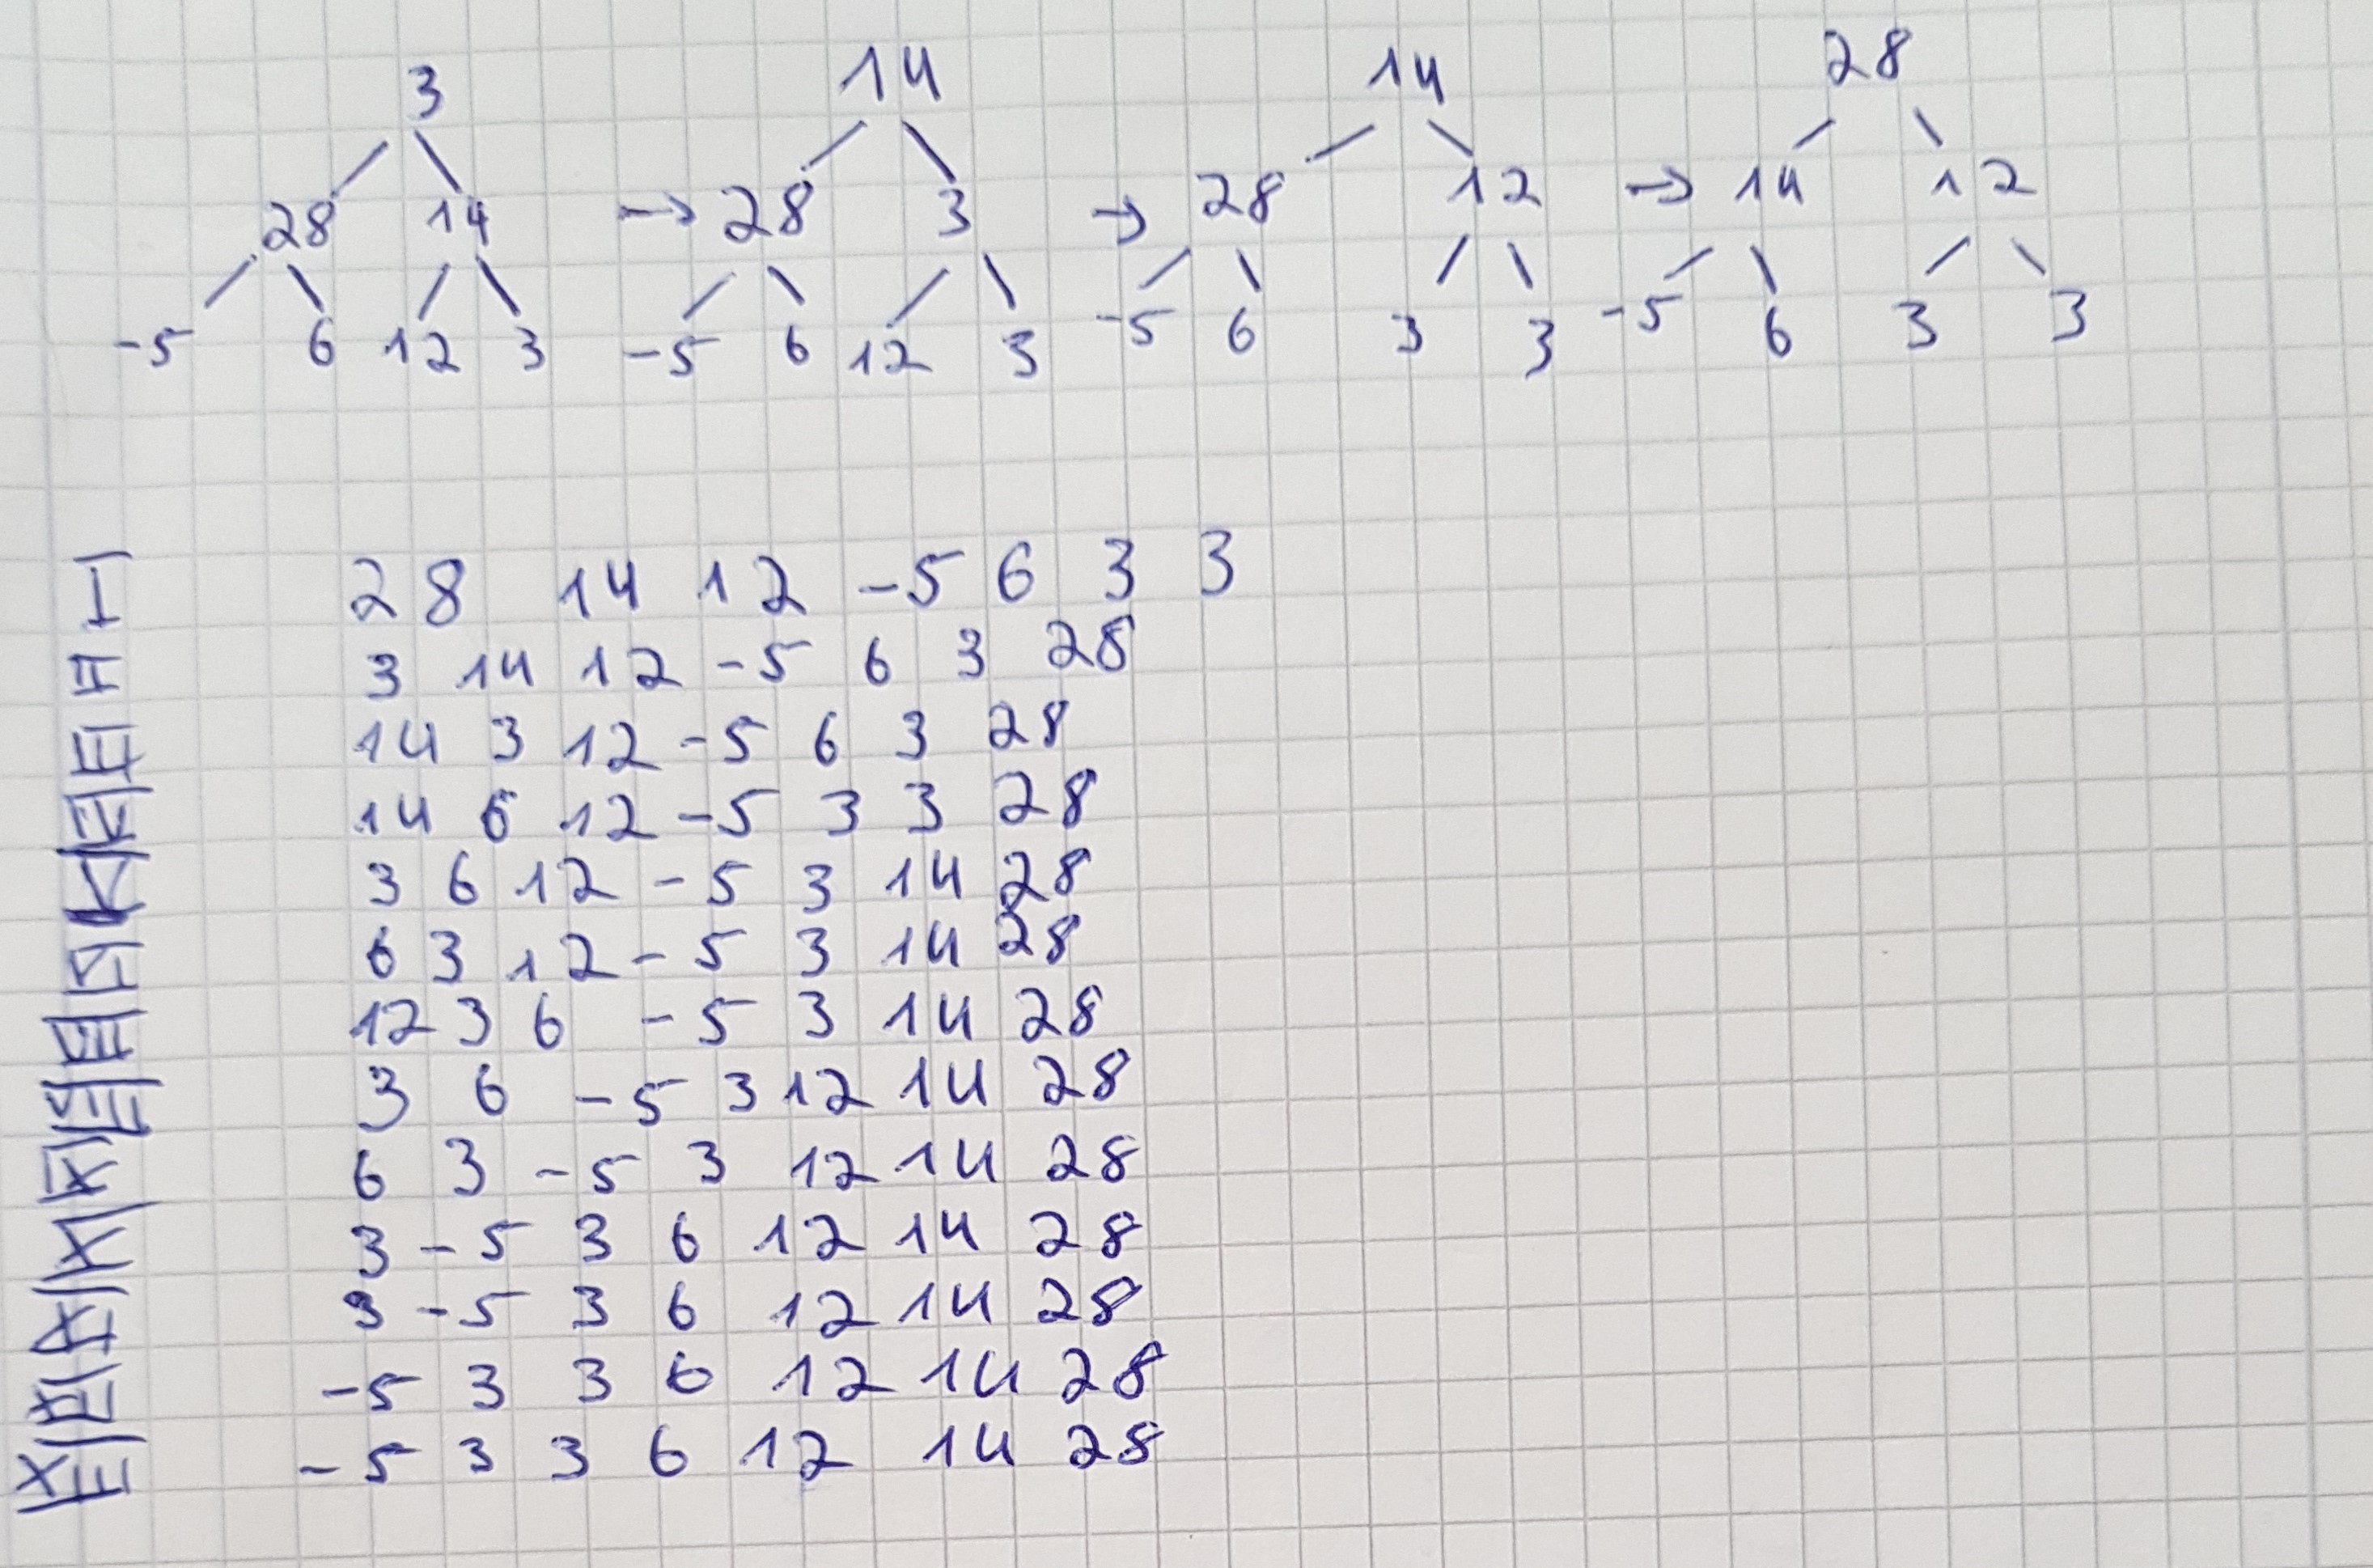 3 14 14 28
28 14 → 28 3 → 28 12 → 14 12
-5 6 12 3 -5 6 12 3 -5 6 3 3 -5 6 3 3
28 14 12 -5 6 3 3
3 14 12 -5 6 3 28
14 3 12 -5 6 3 28
14 6 12 -5 3 3 28
3 6 12 -5 3 14 28
6 3 12 -5 3 14 28
12 3 6 -5 3 14 28
3 6 -5 3 12 14 28
6 3 -5 3 12 14 28
3 -5 3 6 12 14 28
3 -5 3 6 12 14 28
-5 3 3 6 12 14 28
-5 3 3 6 12 14 28